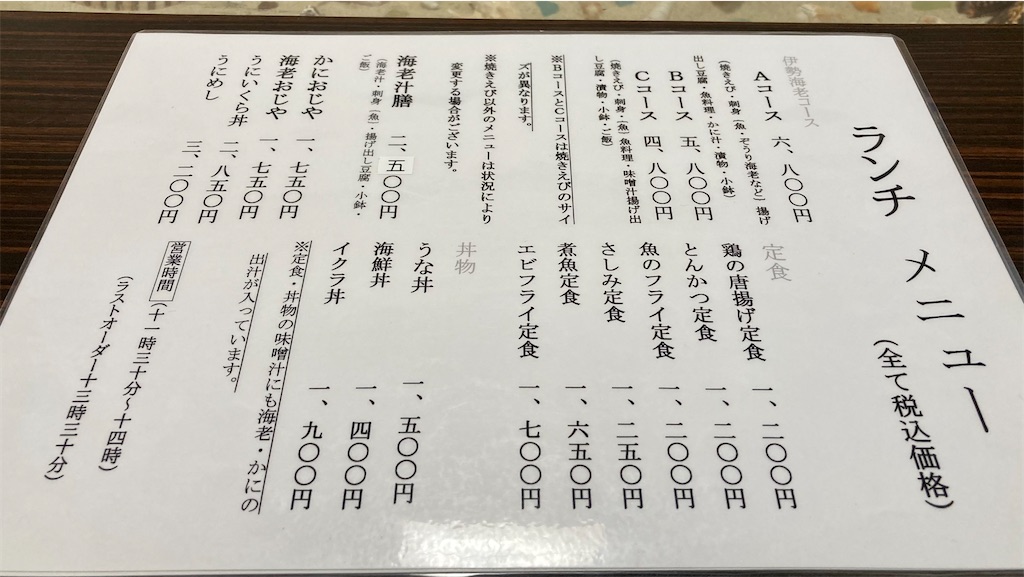 ランチ メニュー
(全て税込価格)
伊勢海老コース
Aコース 六、八〇〇円
(焼きえび・刺身(魚・ぞうり海老など)揚げ
出し豆腐・魚料理・かに汁・漬物・小鉢)
Bコース 五、八〇〇円
Cコース 四、八〇〇円
(焼きえび・刺身・(魚)魚料理・味噌汁揚げ出
し豆腐・漬物・小鉢・ご飯)
※BコースとCコースは焼きえびのサイ
ズが異なります。
※焼きえび以外のメニューは状況により
変更する場合がございます。
海老汁膳 二、五〇〇円
(海老汁・刺身(魚)・揚げ出し豆腐・小鉢・
ご飯)
かにおじや 一、七五〇円
海老おじや 一、七五〇円
うにいくら丼 二、八五〇円
うにめし 三、二〇〇円
定食
鶏の唐揚げ定食 一、二〇〇円
とんかつ定食 一、二〇〇円
魚のフライ定食 一、二〇〇円
さしみ定食 一、二五〇円
煮魚定食 一、六五〇円
エビフライ定食 一、七〇〇円
丼物
うな丼 一、五〇〇円
海鮮丼 一、四〇〇円
イクラ丼 一、九〇〇円
※定食・丼物の味噌汁にも海老・かにの
出汁が入っています。
営業時間 (十一時三十分~十四時)
(ラストオーダー十三時三十分)